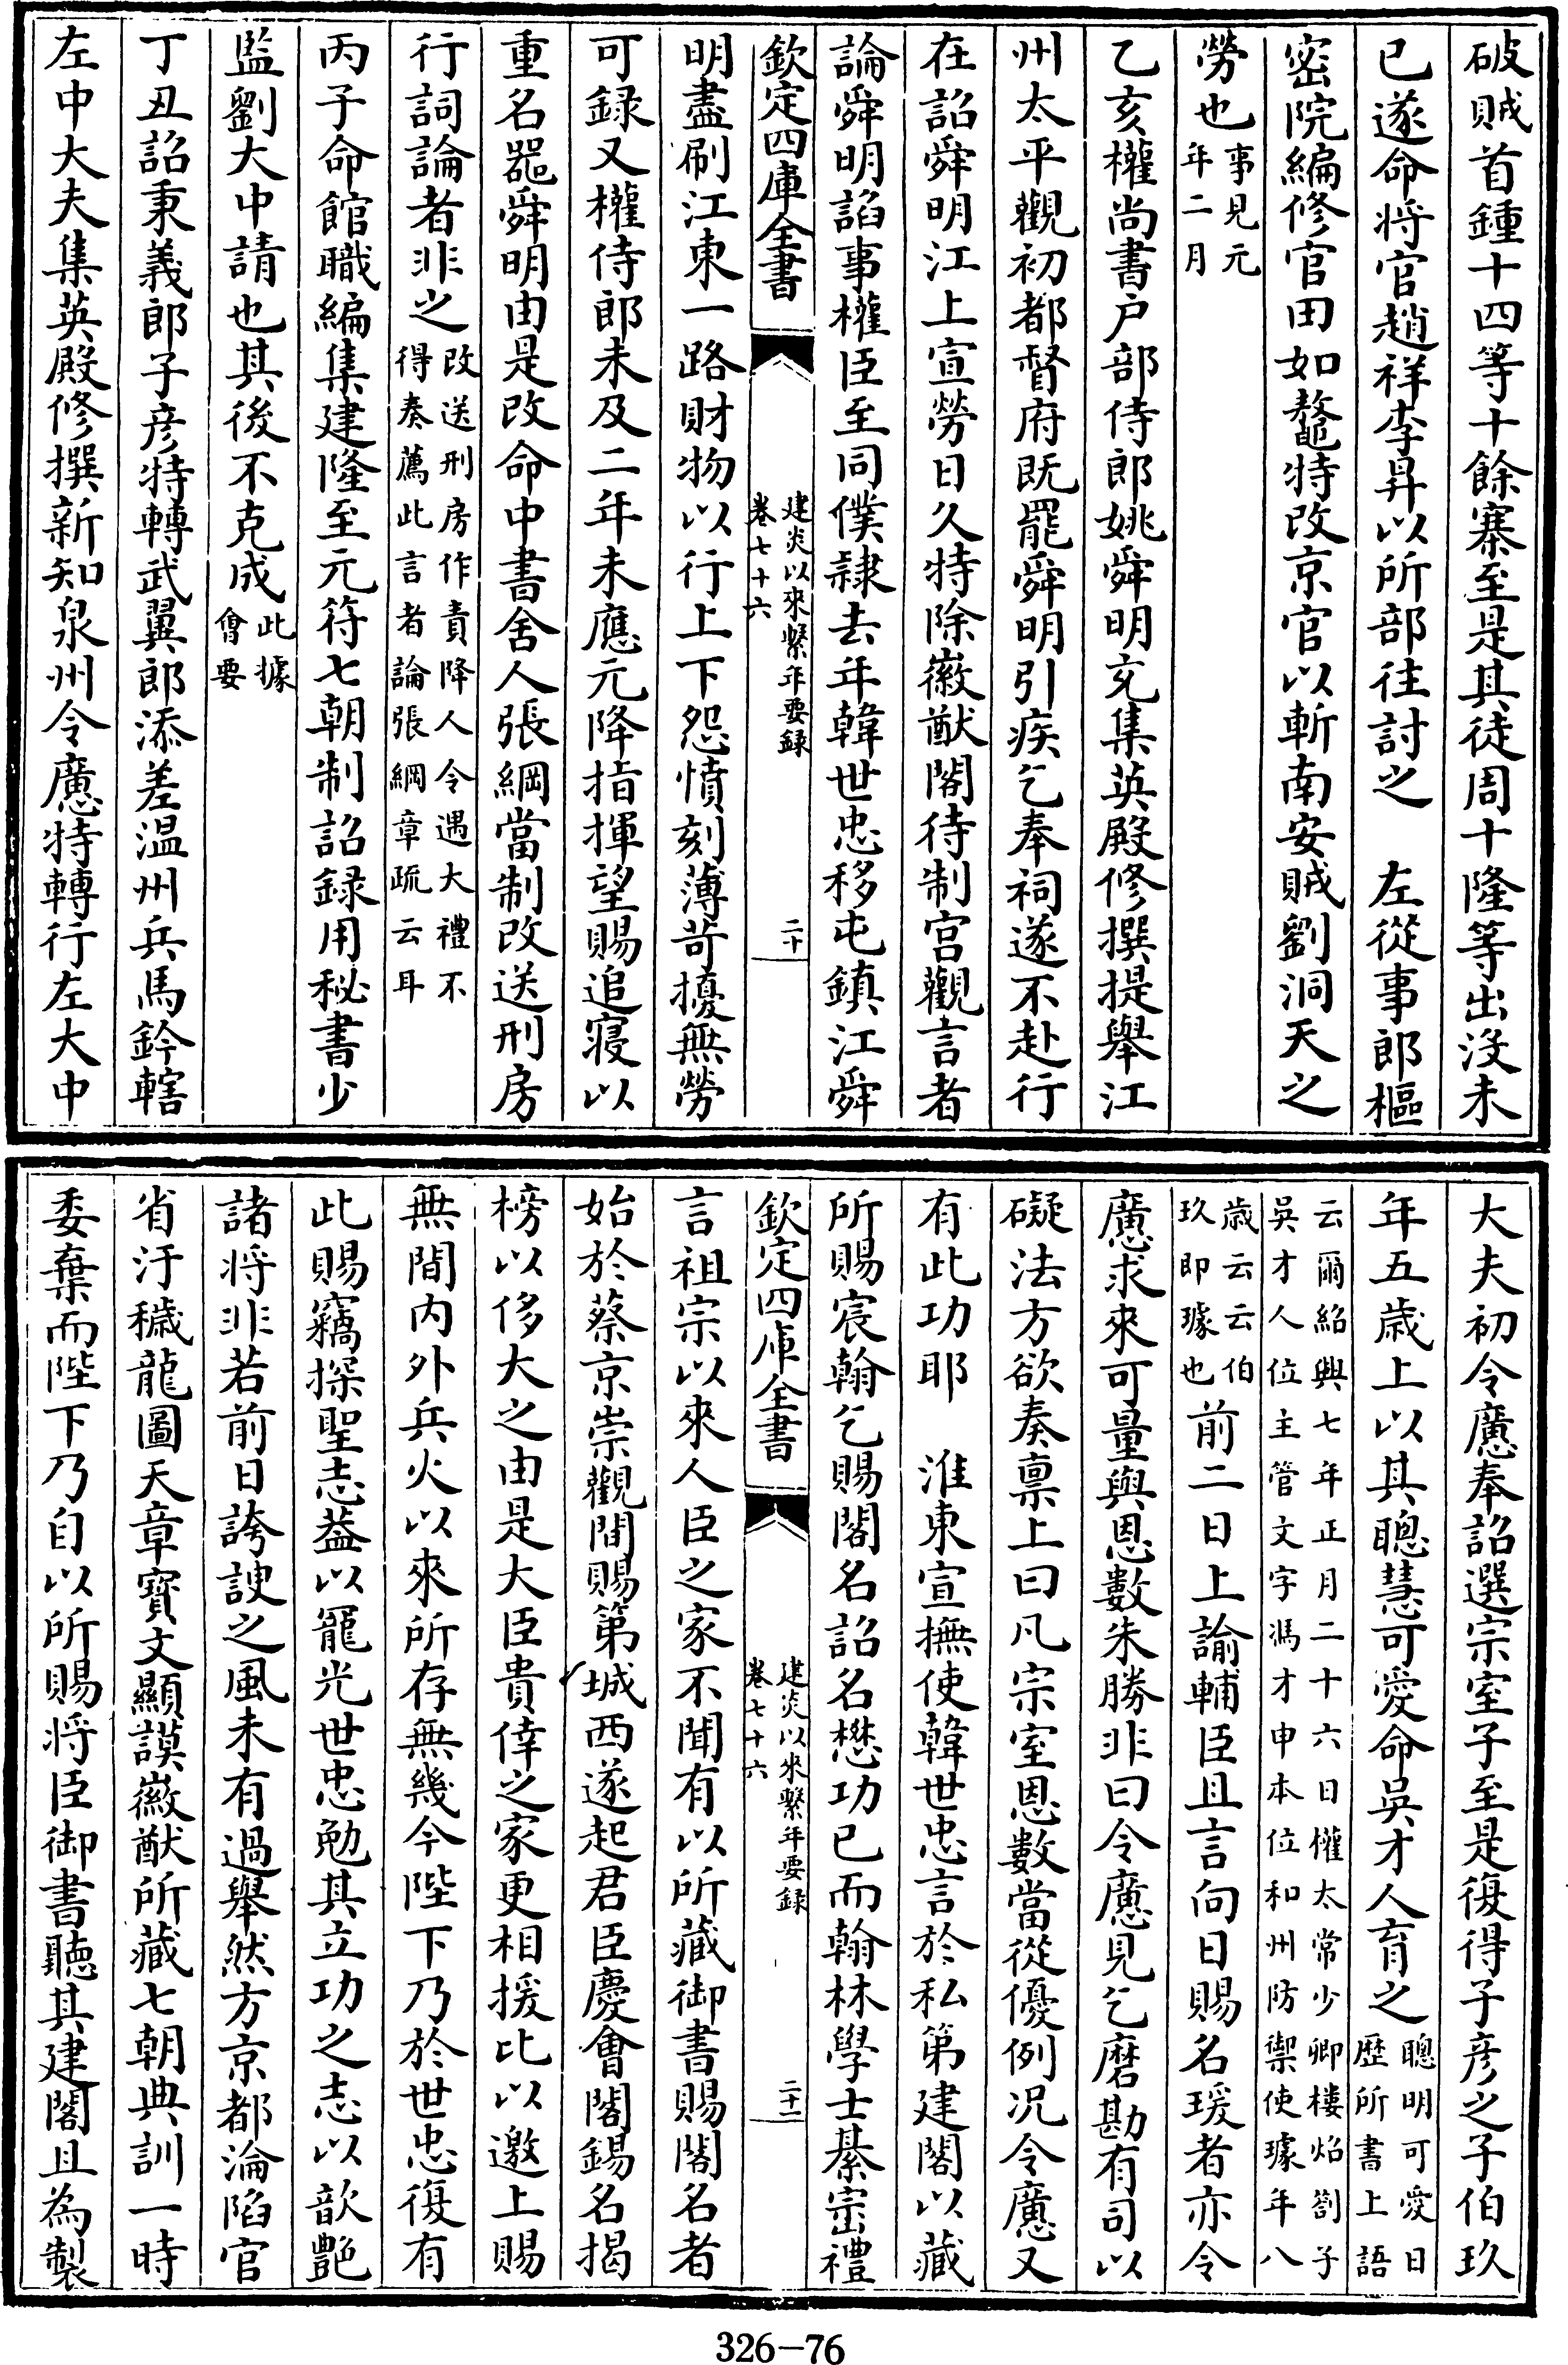 破賊首鍾十四等十餘寨至是其徒周十隆等出没未
已遂命將官趙祥李昇以所部往討之　左從事郎樞
密院編修官田如鼇特改京官以斬南安賊劉洞天之
勞也事見元年二月
乙亥權尚書户部侍郎姚舜明充集英殿修撰提舉江
州太平觀初都督府既罷舜明引疾乞奉祠遂不赴行
在詔舜明江上宣勞日久特除徽猷閣待制宫觀言者
論舜明諂事權臣至同僕隸去年韓世忠移屯鎮江舜
欽定四庫全書
建炎以來繫年要録
卷七十六
二十
明盡刷江東一路財物以行上下怨憤刻薄苛擾無勞
可録又權侍郎未及二年未應元降指揮望賜追寢以
重名器舜明由是改命中書舍人張綱當制改送刑房
行詞論者非之改送刑房作責降人令遇大禮不得奏薦此言者論張綱章疏云耳
丙子命館職編集建隆至元符七朝制詔録用秘書少
監劉大中請也其後不克成此據會要
丁丑詔秉義郎子彦特轉武翼郎添差温州兵馬鈐轄
左中大夫集英殿修撰新知泉州令懬特轉行左大中
大夫初令懬奉詔選宗室子至是復得子彦之子伯玖
年五歲上以其聰慧可愛命吳才人育之聰明可愛日歷所書上語
云爾紹興七年正月二十六日權太常少卿樓炤劄子吳才人位主管文字馮才申本位和州防禦使璩年八
歲云云伯玖即璩也前二日上諭輔臣且言向日賜名瑗者亦令
懬求來可量與恩數朱勝非曰令懬見乞磨勘有司以
礙法方欲奏禀上曰凡宗室恩數當從優例况令懬又
有此功耶　淮東宣撫使韓世忠言於私第建閣以藏
所賜宸翰乞賜閣名詔名懋功已而翰林學士綦崈禮
欽定四庫全書
建炎以來繫年要録
卷七十六
二十一
言祖宗以來人臣之家不聞有以所藏御書賜閣名者
始於蔡京崇觀間賜第城西遂起君臣慶會閣錫名揭
榜以侈大之由是大臣貴倖之家更相援比以邀上賜
無間内外兵火以來所存無幾今陛下乃於世忠復有
此賜竊探聖志葢以寵光世忠勉其立功之志以歆艷
諸將非若前日誇諛之風未有過舉然方京都淪陷官
省汙穢龍圖天章寶文顯謨徽猷所藏七朝典訓一時
委棄而陛下乃自以所賜將臣御書聽其建閣且為製
326-76